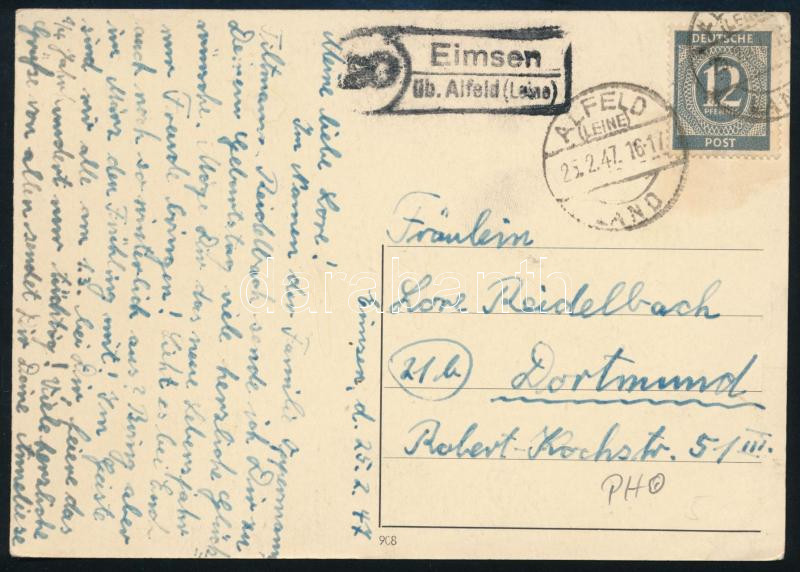 Eimsen
üb. Alfeld (Leine)
ALFELD
(LEINE)
25.2.47. 16-17
LAND
DEUTSCHE
12
PFENNIG
POST
Eimsen, d. 25. 2. 47
Meine liebe Lore!
Im Namen der Familie Oppermann,
Tiltmann, Reidelbach sende ich Dir zu
Deinem Geburtstag viele herzliche Glück
wünsche. Möge Dir das neue Lebensjahr
nur Freude bringen! Sieht es bei Euch
auch noch so winterlich aus? Bring aber
im März den Frühling mit! Im Geiste
sind wir alle am 1.3. bei Dir, feiere das
1/4 Jahrhundert nur tüchtig! Viele herzliche
Grüße von allen sendet Dir Deine Anneliese
Fräulein
Lore Reidelbach
21b Dortmund
Robert-Kochstr. 51 III.
PHO
908
darabanth